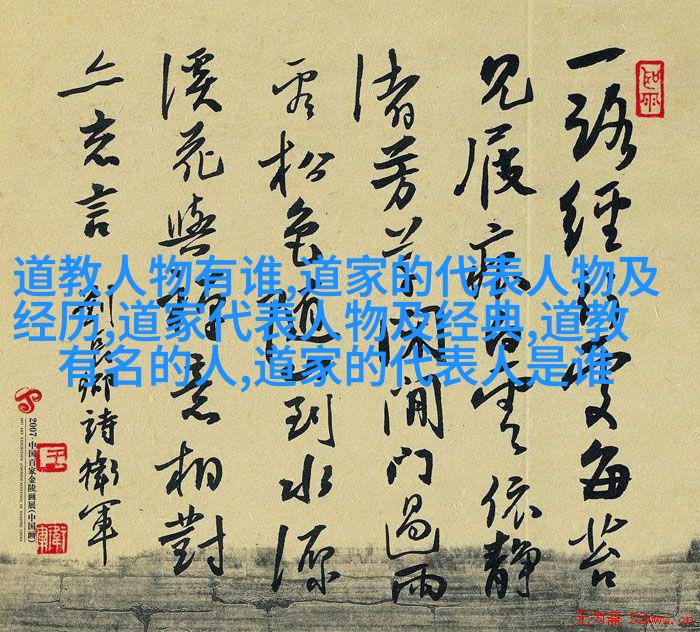 道教人物有谁,道家的代表人物及
经历,道家代表人物及经典,道教
有名的人,道家的代表人是谁
一路經行處每苔
見履痕白雲依静
渚芳草闭閒門過雨
看松色随山到水源
溪花與禅意相對
亦忘言
刘長卿詩衛軍
2007·中国百家金陵画展(中国画)
无为斋 52wwz.cn